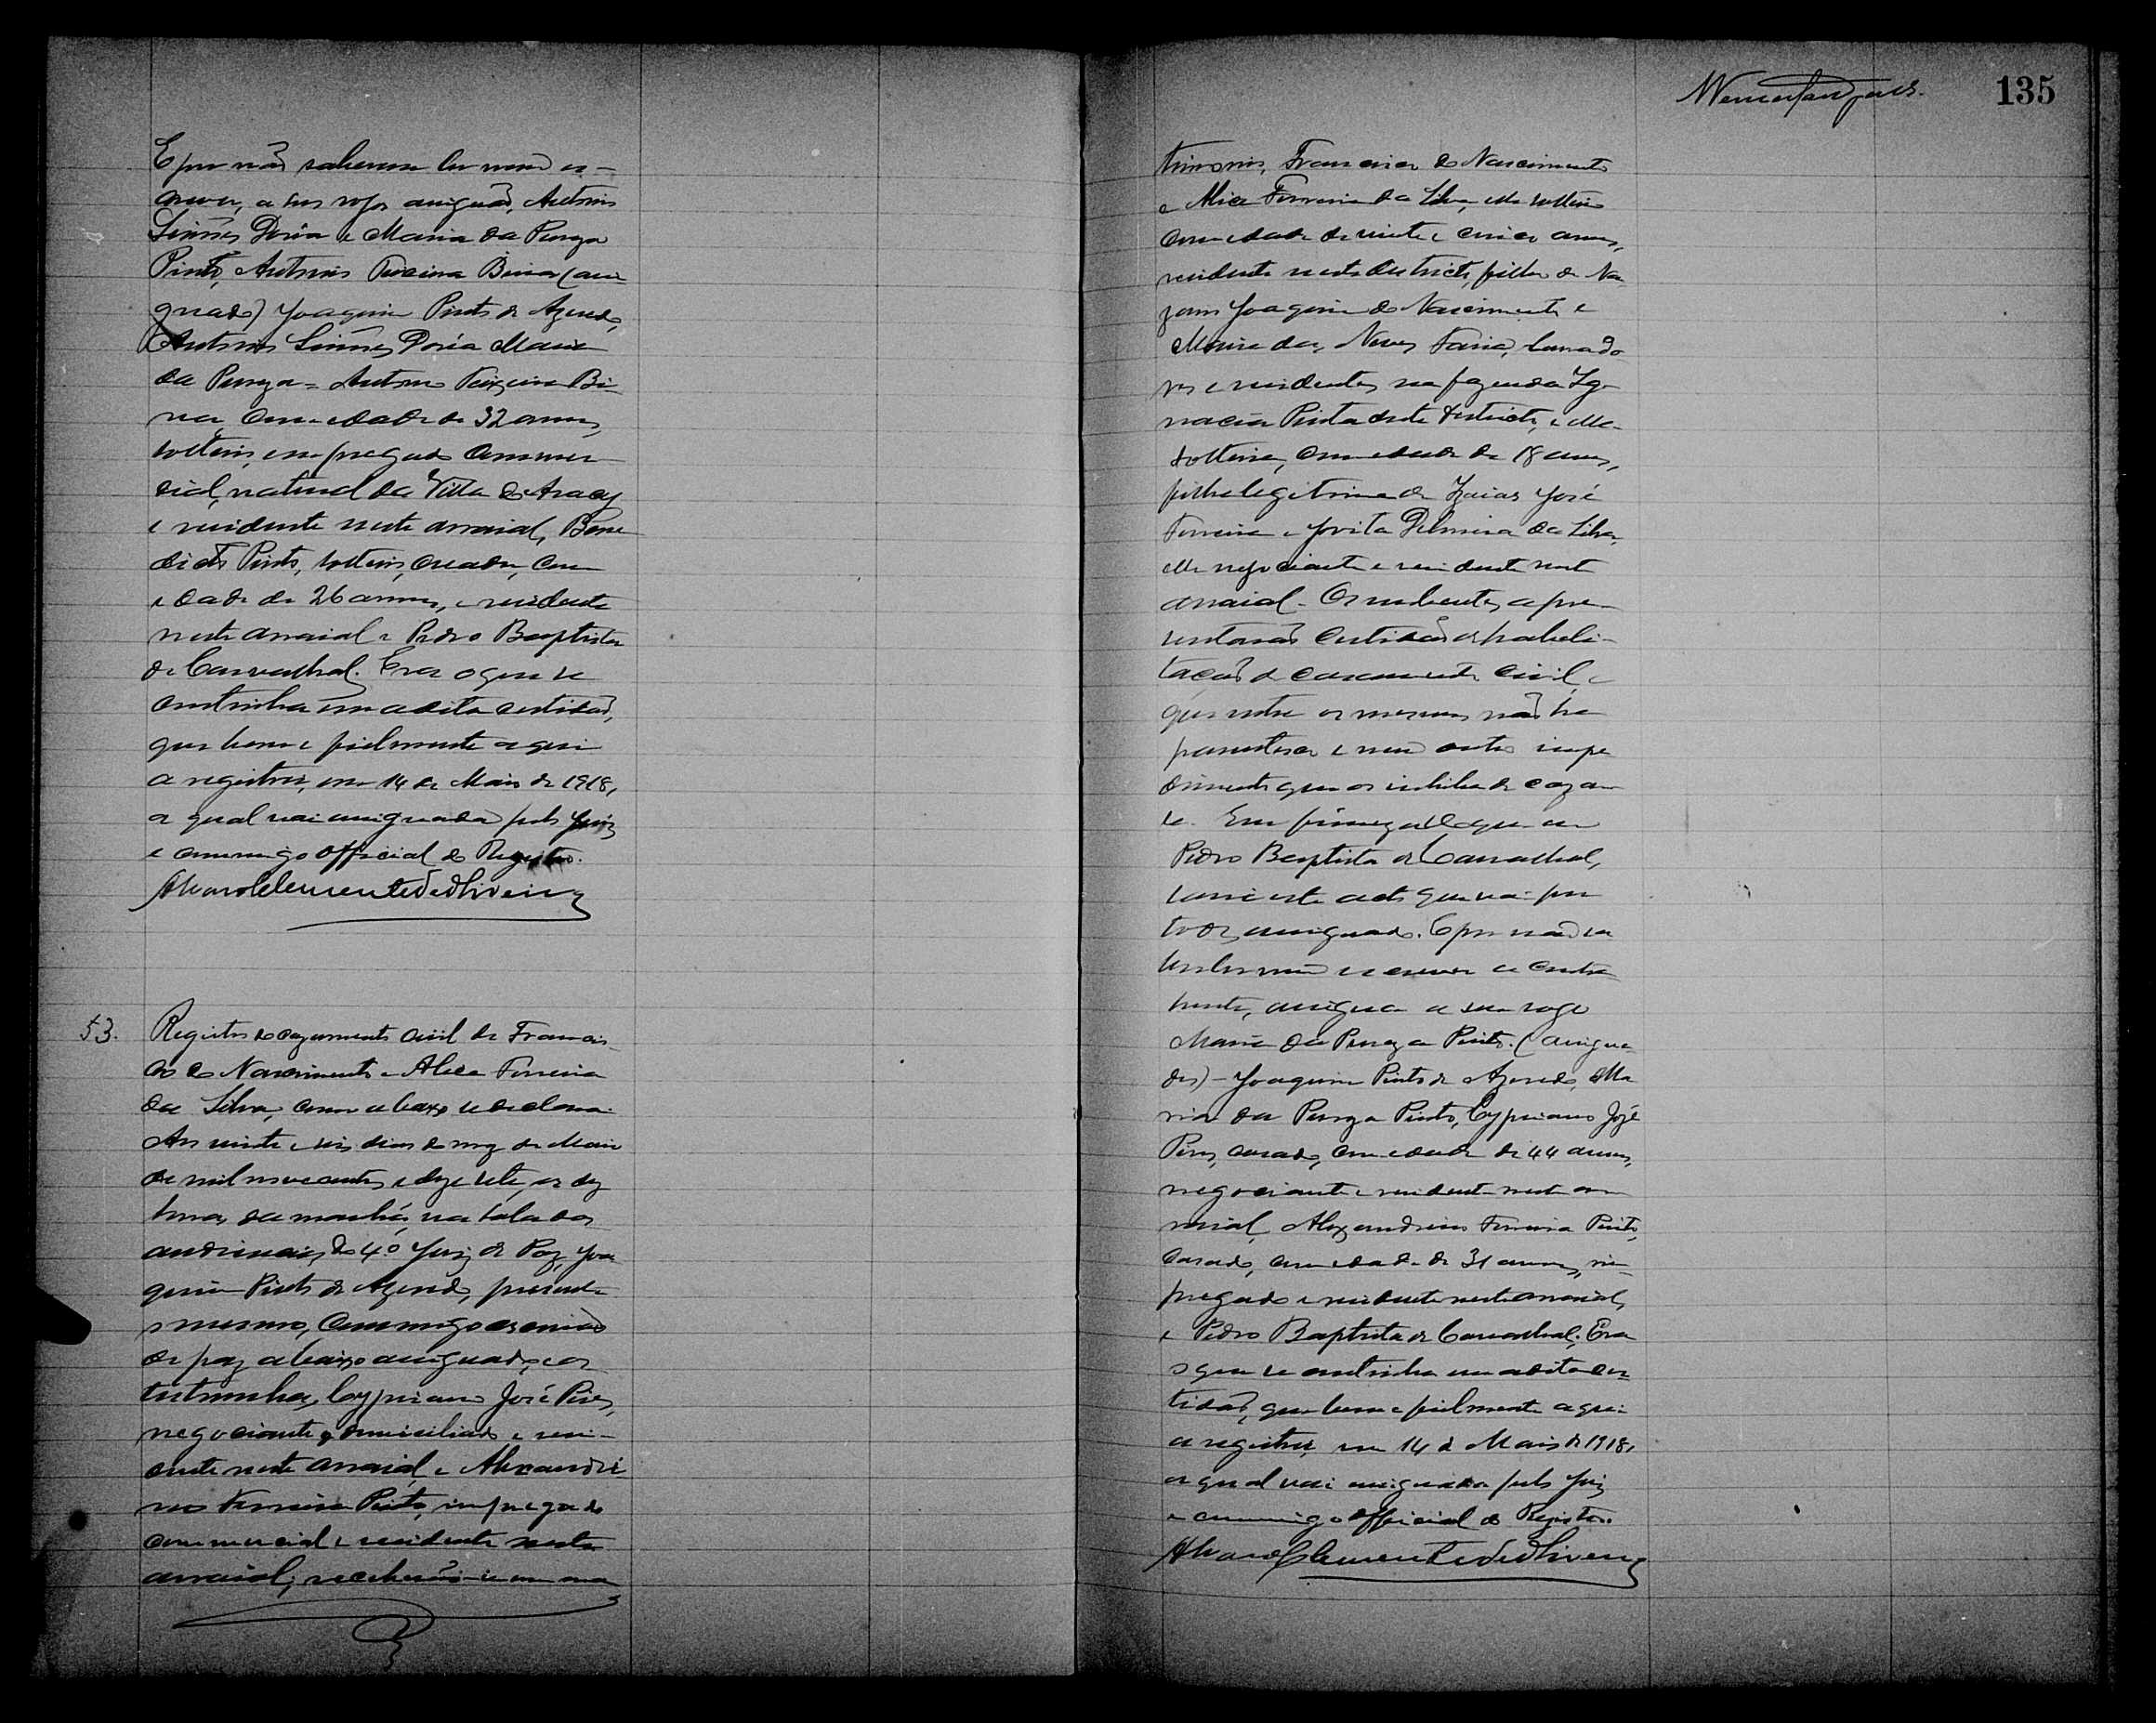 E por não saberem ler nem es-
crever, a seus rogos assignão, Antonio
Simões Doria e Maria da Pureza
Pinto, Antonio Teixeira Bina (assi-
gnados) Joaquim Pinto de Azevedo,
Antonio Simões Doria Maria
da Pureza = Antonio Teixeira Bi-
na, com idade de 32 annos,
solteiro, empregado commer-
cial, natural da Villa de Aracy
e residente neste arraial, Bene-
dicto Pinto, solteiro, creador, com
idade de 26 annos, e residente
neste arraial e Pedro Baptista
de Carvalhal. Era o que se
continha em a dita certidão,
que bem e fielmente aqui
a registrei, em 14 de Maio de 1918,
a qual vai assignada pelo Juiz
e commigo official do Registro.
Alvaro Clemente de Oliveira
53. Registro do cazamento civil de Francis-
co do Nascimento e Alice Ferreira
da Silva, como abaixo se declara.
Aos vinte e seis dias do mez de Maio
de mil novecentos e dezesete, as dez
horas da manhã, na sala das
audiencias, do 4.º Juiz de Paz, Joa-
quim Pinto de Azevedo, presente
o mesmo, commigo escrivão
de paz abaixo assignado, e as
testemunhas, Cypriano José Pires,
negociante, domiciliado e resi-
dente neste arraial, e Alexandri-
no Ferreira Pinto, empregado
commercial e residente neste
arraial, receberão-se em ma-
135
trimonio, Francisco do Nascimento
e Alice Ferreira da Silva, elle solteiro
com idade de vinte e cinco annos,
residente neste districto, filho de Na-
zario Joaquim do Nascimento e
Maria das Neves Faria, lavrado-
res e residentes na fazenda Ig-
nacia Pinta deste districto, e ella
solteira, com idade de 18 annos,
filha legitima de Izaias José
Ferreira e Jovita Delmira da Silva,
elle negociante e residente neste
arraial. Os nubentes, apre-
sentarão certidão de habeli-
tação de casamento civil, e
que entre os mesmos não ha
parentesco e nem outro impe-
dimento que os inhiba de cazar-
se. Em firmeza do que eu
Pedro Baptista de Carvalhal,
lavrei este acto que vai por
todos assignado. E por não sa-
ber ler nem escrever a contra-
hente, assigna a seu rogo
Maria da Pureza Pinto. (assigna-
dos) - Joaquim Pinto de Azevedo, Ma-
ria da Pureza Pinto, Cypriano José
Pires, casado, com idade de 44 annos,
negociante e residente neste ar-
raial, Alexandrino Ferreira Pinto,
casado, com idade de 31 annos, em-
pregado e residente neste arraial,
e Pedro Baptista de Carvalhal. Era
o que se continha em a dita cer-
tidão, que bem e fielmente aqui
a registrei, em 14 de Maio de 1918,
a qual vai assignada pelo Juiz
e commigo official do Registro.
Alvaro Clemente de Oliveira